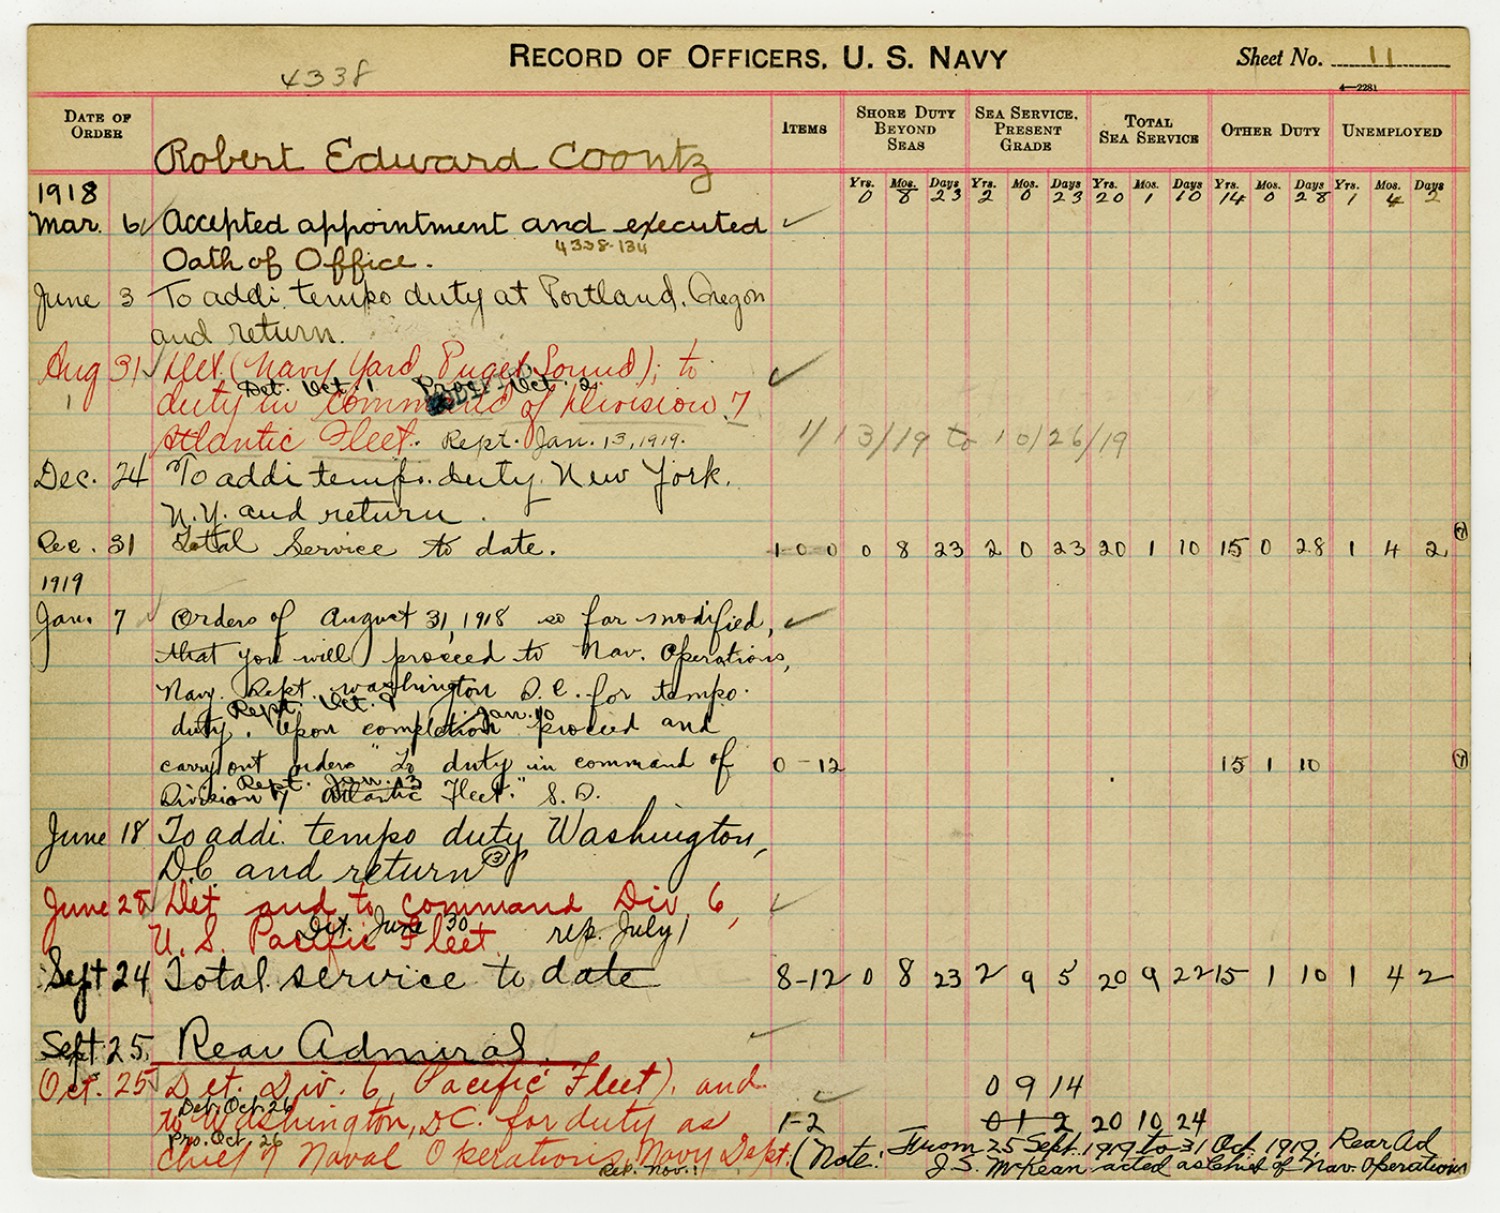 4338
RECORD OF OFFICERS, U. S. NAVY
Sheet No. 11
4—2281
DATE OF ORDER
Robert Edward Coontz
ITEMS
SHORE DUTY BEYOND SEAS
SEA SERVICE, PRESENT GRADE
TOTAL SEA SERVICE
OTHER DUTY
UNEMPLOYED
Yrs. Mos. Days Yrs. Mos. Days Yrs. Mos. Days Yrs. Mos. Days Yrs. Mos. Days
1918 0 8 23 2 0 23 20 1 10 14 0 28 1 4 2
Mar. 6 Accepted appointment and executed ✓
4338-134
Oath of Office.
June 3 To addi. tempo duty at Portland, Oregon
and return.
Aug 31 Det. (Navy Yard, Puget Sound); to ✓
Det. Oct. 1 Oct. 2
1 duty in command of Division 7
Atlantic Fleet. Rept. Jan. 13, 1919. 1/13/19 to 10/26/19
Dec. 24 To addi tempo. duty New York,
N.Y. and return.
Dec. 31 Total Service to date. 1 0 0 0 8 23 2 0 23 20 1 10 15 0 28 1 4 2
1919
Jan. 7 Orders of August 31, 1918 so far modified, ✓
that you will proceed to Nav. Operations,
Navy Dept. Washington D.C. for tempo.
Rept. Oct. 9 Jan. 10
duty. Upon completion proceed and
carry out orders "To duty in command of 0-12 15 1 10
Rept. Jan. 13
Division 7 Atlantic Fleet." S.D.
June 18 To addi. tempo duty Washington,
DC and return ③
June 28 Det and to command Div. 6, ✓
Det. June 30
U. S. Pacific Fleet rep. July 1
Sept 24 Total service to date 8-12 0 8 23 2 9 5 20 9 22 15 1 10 1 4 2
Sept. 25 Rear Admiral. ✓
Oct. 25 Det. Div. 6, Pacific Fleet), and ✓ 0 9 14
Det. Oct. 26
to Washington, D.C. for duty as 1-2 0 1 2 20 10 24
Pro. Oct. 26
Chief of Naval Operations, Navy Dept. (Note: From 25 Sept. 1919 to 31 Oct. 1919, Rear Ad
Rep. Nov. 1 J.S. McKean acted as Chief of Nav. Operations